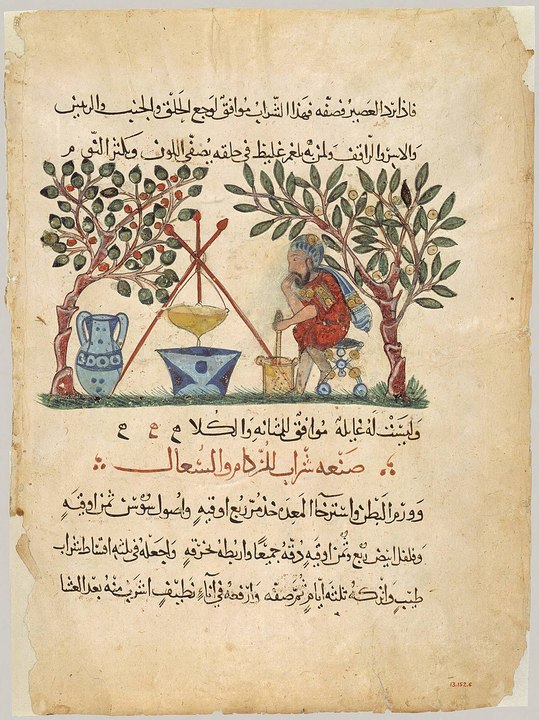 فاذا برد العصير فصفه فهذا الشراب موافق لوجع الحلق والجنب والريش
والاسر والراقف ولمن به بلغم غليظ في حلقه يصفي اللون ويكثر النوم م
وليست له غايله موافق للمثانه والكلا م م م
صنعه شراب للزكام والسعال
وورم البطن واسترخا المعده خذ مر ربع اوقيه واصول سوس ثمن اوقيه
وفلفل ابيض ربع وثمن اوقيه دقه جميعا واربطه بخرقه واجعله في ثلثه اقساط شراب
طيب واتركه ثلثه ايام ثم صفه وارفعه في اناء نظيف اشرب منه بعد العشا
13.152.6